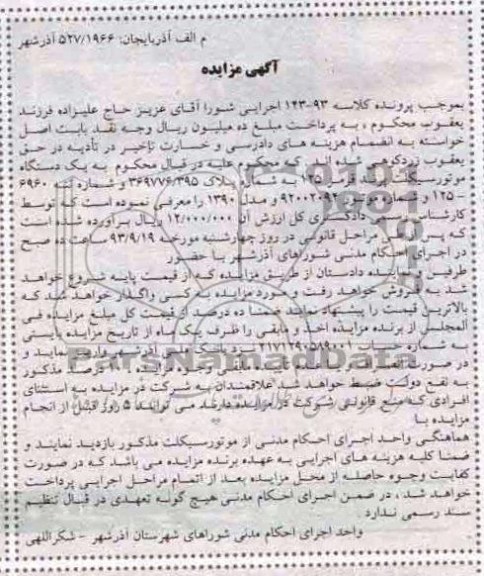 م الف آذربایجان: ۵۲۷/۱۹۶۶ آذرشهر
آگهی مزایده
بموجب پرونده کلاسه ۹۳-۱۴۳ اجرایی شورا آقای عزیز حاج علیزاده فرزند
یعقوب محکوم ، به پرداخت مبلغ ده میلیون ریال وجه نقد بابت اصل
خواسته به انضمام هزینه های دادرسی و خسارت تاخیر در تأدیه در حق
یعقوب زردکوهی شده اند. که محکوم علیه در قبال محکوم به یک دستگاه
موتورسیکلت ۱۲۵ به شماره پلاک ۳۶۹۷۷۶/۳۹۵ و شماره تنه ۶۹۶۰
۱۲۵۰ و شماره موتور ۹۲۰۰۲۰۹۲ و مدل ۱۳۹۰ را معرفی نموده است که توسط
کارشناس رسمی دادگستری کل ارزش آن ۱۲/۰۰۰/۰۰۰ ریال برآورده شده است
که پس از طی مراحل قانونی در روز چهارشنبه مورخه ۹۳/۹/۱۹ ساعت ده صبح
در اجرای احکام مدنی شوراهای آذرشهر با حضور
طرفین و نماینده دادستان از طریق مزایده که از قیمت پایه شروع خواهد
شد به فروش خواهد رفت و مورد مزایده به کسی واگذار خواهد شد که
بالاترین قیمت را پیشنهاد نماید ضمنا ده درصد از قیمت کل مبلغ مزایده فی
المجلس از برنده مزایده اخذ و مابقی را ظرف یک ماه از تاریخ مزایده بایستی
به شماره حساب ۲۱۷۱۲۹۰۵۱۹۰۰۱ نزد بانک ملی آذرشهر واریز نماید و
در صورت انصراف و عدم تأدیه مابقی وجه ده درصد مذکور
به نفع دولت ضبط خواهد شد علاقمندان به شرکت در مزایده به استثنای
افرادی که منع قانونی شرکت در مزایده دارند می توانند ۵ روز قبل از انجام
مزایده با
هماهنگی واحد اجرای احکام مدنی از موتورسیکلت مذکور بازدید نمایند و
ضمنا کلیه هزینه های اجرایی به عهده برنده مزایده می باشد که در صورت
کفایت وجوه حاصله از محل مزایده بعد از اتمام مراحل اجرایی پرداخت
خواهد شد ، در ضمن اجرای احکام مدنی هیچ گونه تعهدی در قبال تنظیم
سند رسمی ندارد .
واحد اجرای احکام مدنی شوراهای شهرستان آذرشهر - شکراللهی